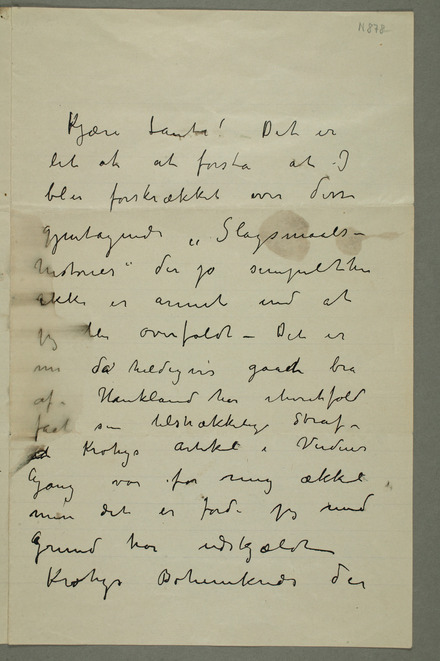 N 878
Kjære tante! Det er
let at at forstå at I
blev forskrækket over disse
gjentagende „Slagsmaals-
historier" der jo simpelthen
ikke er annet end at
jeg blev overfaldt – Det er
nu da heldigvis gaaet bra
af. Haukland har
faat sin tilstrækkelige Straf –
Krohgs artikel i Verdens
Gang var for mig ækkel,
men det er fordi jeg med
Grund har udskjældt
Krohgs Bohemkreds der